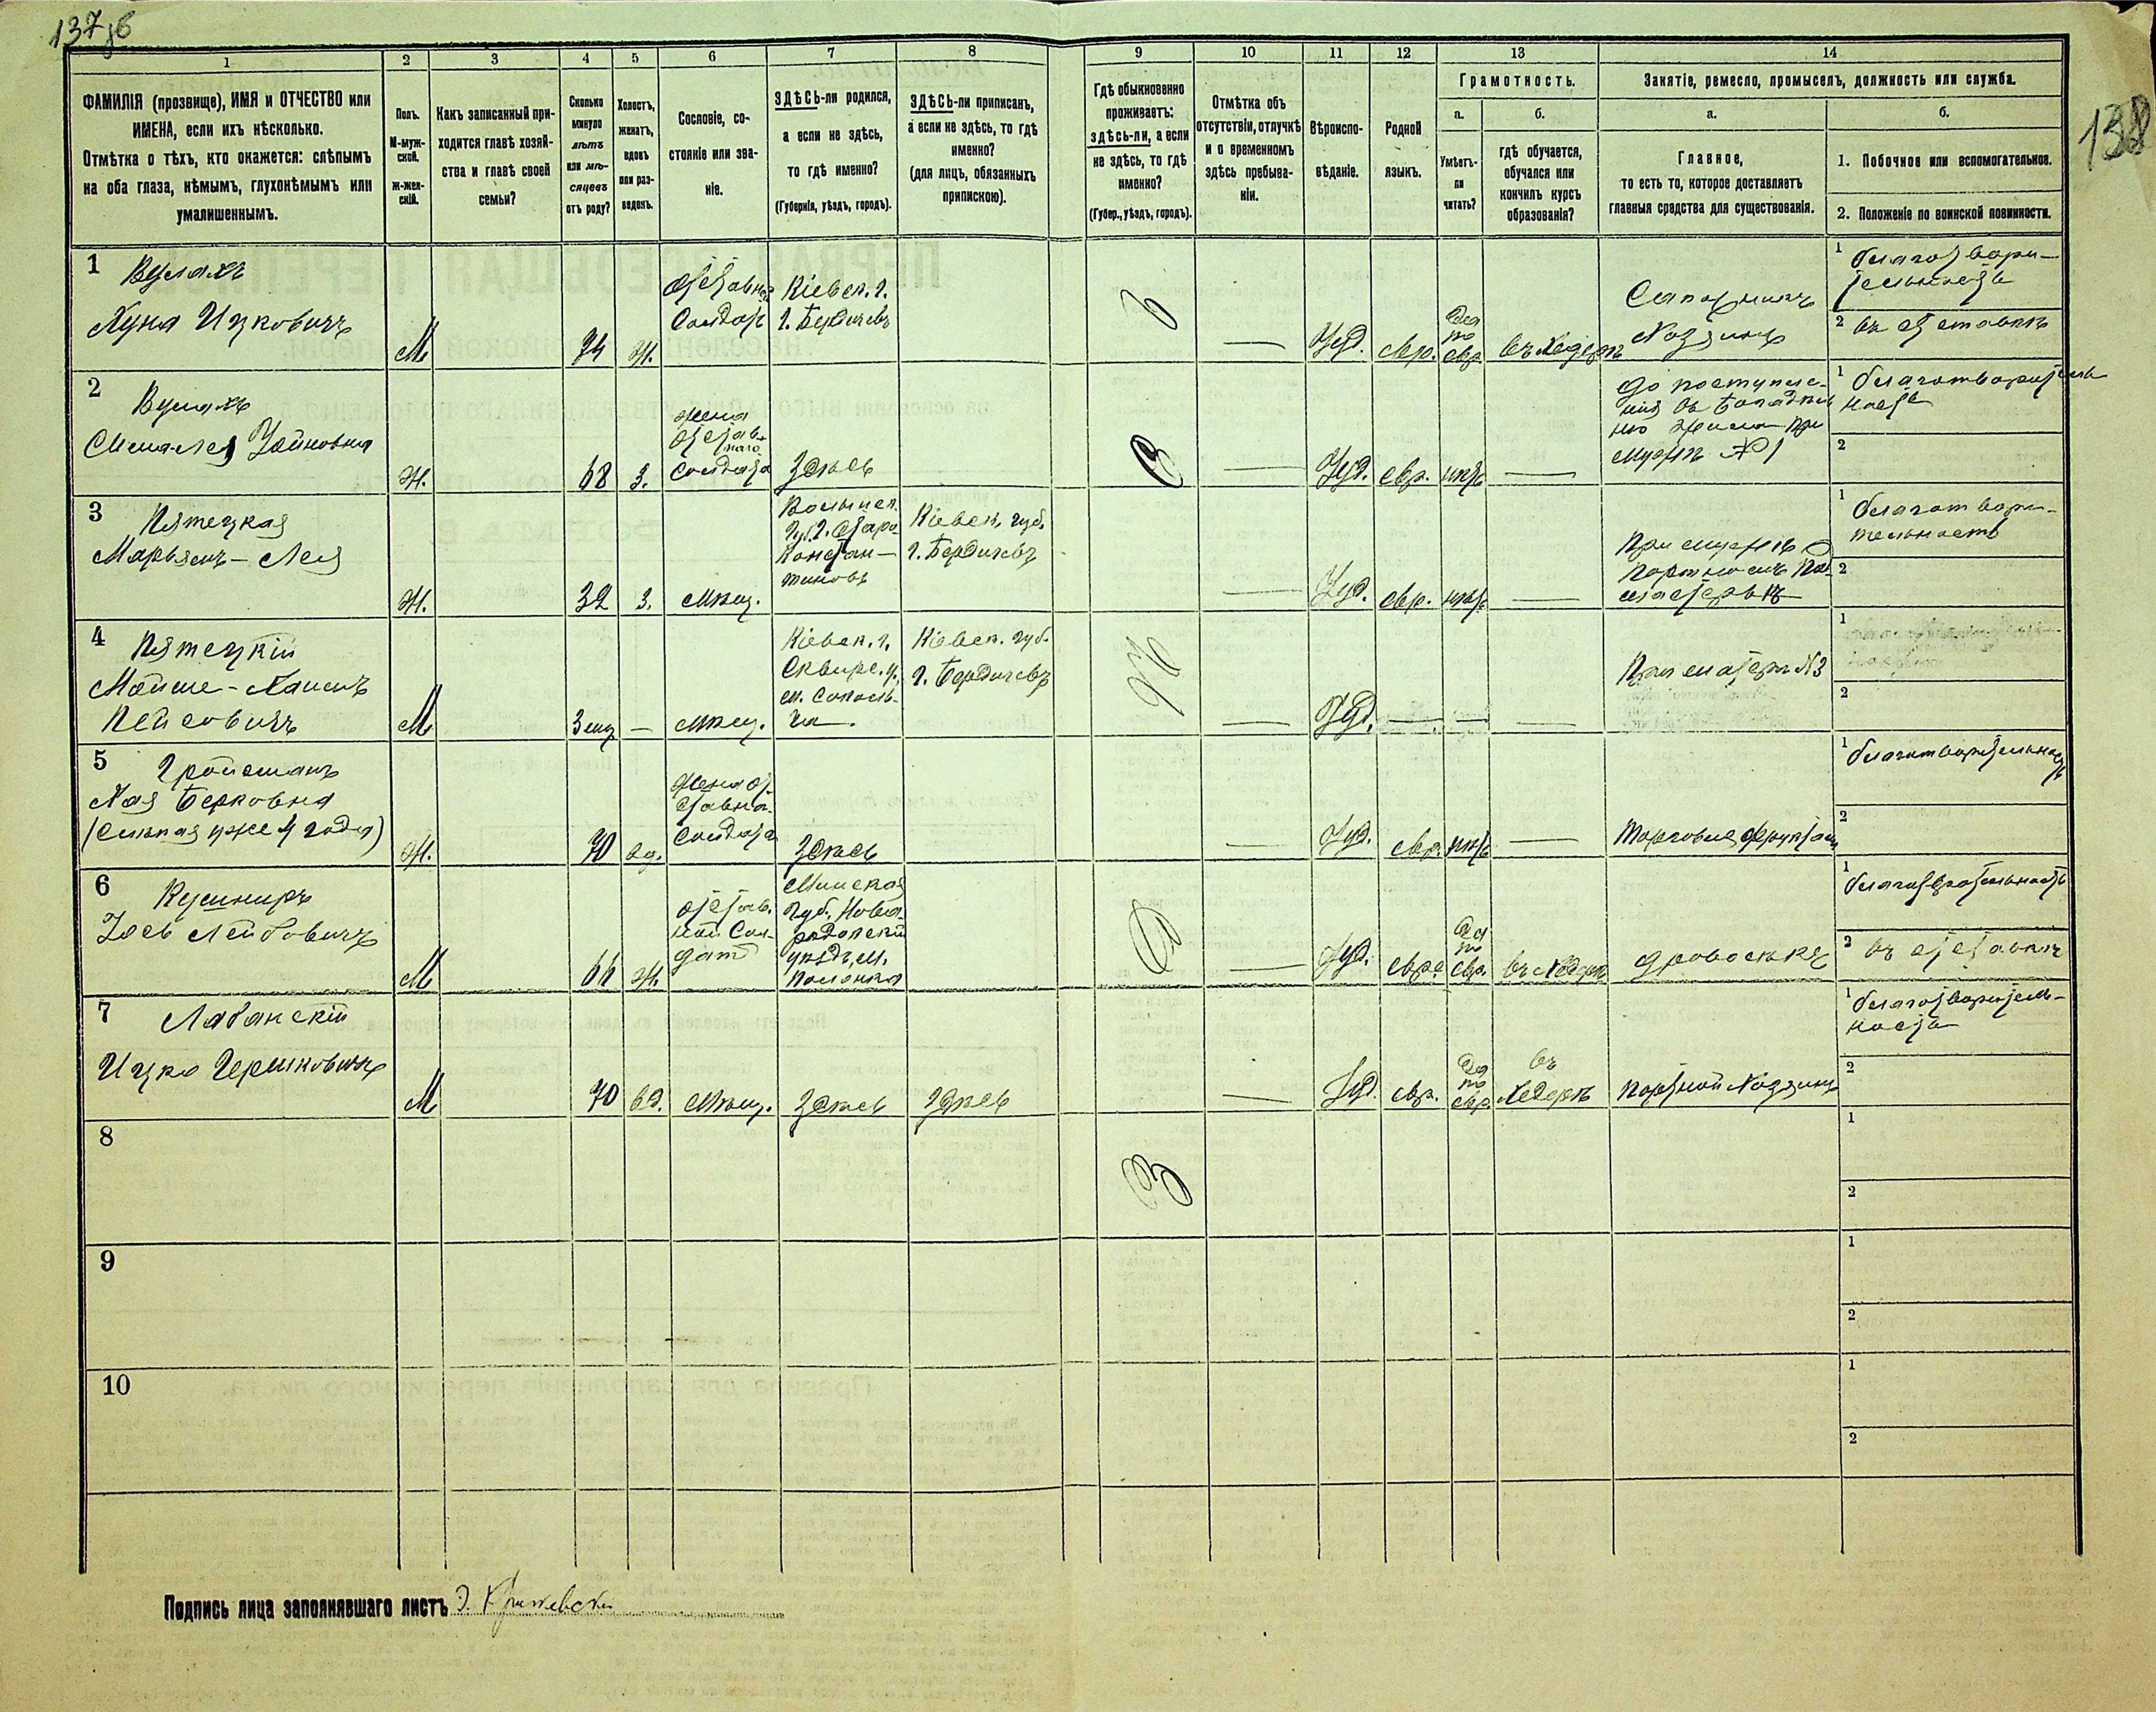 137 об
138
1
2
3
4
5
6
7
8
9
10
11
12
13
14
ФАМИЛІЯ (прозвище), ИМЯ и ОТЧЕСТВО или
ИМЕНА, если ихъ нѣсколько.
Отмѣтка о тѣхъ, кто окажется: слѣпымъ
на оба глаза, нѣмымъ, глухонѣмымъ или
умалишеннымъ.
Полъ.
М-муж-
ской.
ж-жен-
скій.
Какъ записанный при-
ходится главѣ хозяй-
ства и главѣ своей
семьи?
Сколько
минуло
лѣтъ
или мѣ-
сяцевъ
отъ роду?
Холостъ,
женатъ,
вдовъ
или раз-
веденъ.
Сословіе, со-
стояніе или зва-
ніе.
ЗДѢСЬ-ли родился,
а если не здѣсь,
то гдѣ именно?
(Губернія, уѣздъ, городъ).
ЗДѢСЬ-ли приписанъ,
а если не здѣсь, то гдѣ
именно?
(для лицъ, обязанныхъ
припискою).
Гдѣ обыкновенно
проживаетъ:
здѣсь-ли, а если
не здѣсь, то гдѣ
именно?
(Губер., уѣздъ, городъ).
Отмѣтка объ
отсутствіи, отлучкѣ
и о временномъ
здѣсь пребыва-
ніи.
Вѣроиспо-
вѣданіе.
Родной
языкъ.
Грамотность.
а.
Умѣетъ-
ли
читать?
б.
гдѣ обучается,
обучался или
кончилъ курсъ
образованія?
Занятіе, ремесло, промыселъ, должность или служба.
а.
Главное,
то есть то, которое доставляетъ
главныя средства для существованія.
б.
1. Побочное или вспомогательное.
2. Положеніе по воинской повинности.
1
Вулахъ
Хуна Ицковичъ
М
74
Ж.
Отставной
Солдатъ
Кіевск. г.
г. Бердичевъ
Іуд.
евр.
Да
по
евр.
въ Хедерѣ
Сапожникъ
Хозяинъ
1 благотвори-
тельность
2 въ отставкѣ
2
Вулахъ
Ж.
68
З.
Жена
Отстав-
наго
Солдата
Здѣсь
Іуд.
евр.
нѣтъ
До поступле-
нія въ богадѣль
ню жила при
мужѣ № 1
1 благотворитель
ность
2
3
Пятецкая
Марьямъ-Лея
Ж.
32
З.
Мѣщ.
Волынск.
Губ. г. Старо
Констан-
тиновъ
Кіевск. губ.
г. Бердичевъ
Іуд.
евр.
нѣтъ
При мужѣ
1 благотвори-
тельность
2
4
Пятецкій
Мойше-Хаимъ
Пейсовичъ
М
3 мц
Мѣщ.
Кіевск. г.
Сквирс. у.
Кіевск. губ.
г. Бердичевъ
Іуд.
При матери № 3
1
2
5
Гройсманъ
Хая Берковна
(слѣпая уже 4 года)
Ж.
70
вд.
Жена от-
ставна.
Солдата
Здѣсь
Іуд.
евр.
нѣтъ
Торговля фруктами
1 благотворительность
2
6
Кушниръ
Іось Лейбовичъ
М
66
Ж.
Отстав-
ной Сол-
датъ
Минска.
Губ., Ново-
градскій
уѣздъ, м.
Полонка
Іуд.
евр.
Да
по
евр.
въ Хедерѣ
1 благотворительность
2 въ отставкѣ
7
Лабанскій
Ицко Гершковичъ
М
70
вд.
Мѣщ.
Здѣсь
Здѣсь
Іуд.
евр.
Да
по
евр.
въ
Хедерѣ
Портной Хозяинъ
1 благотворитель-
ность
2
8
1
2
9
1
2
10
1
2
Подпись лица заполнявшаго листъ